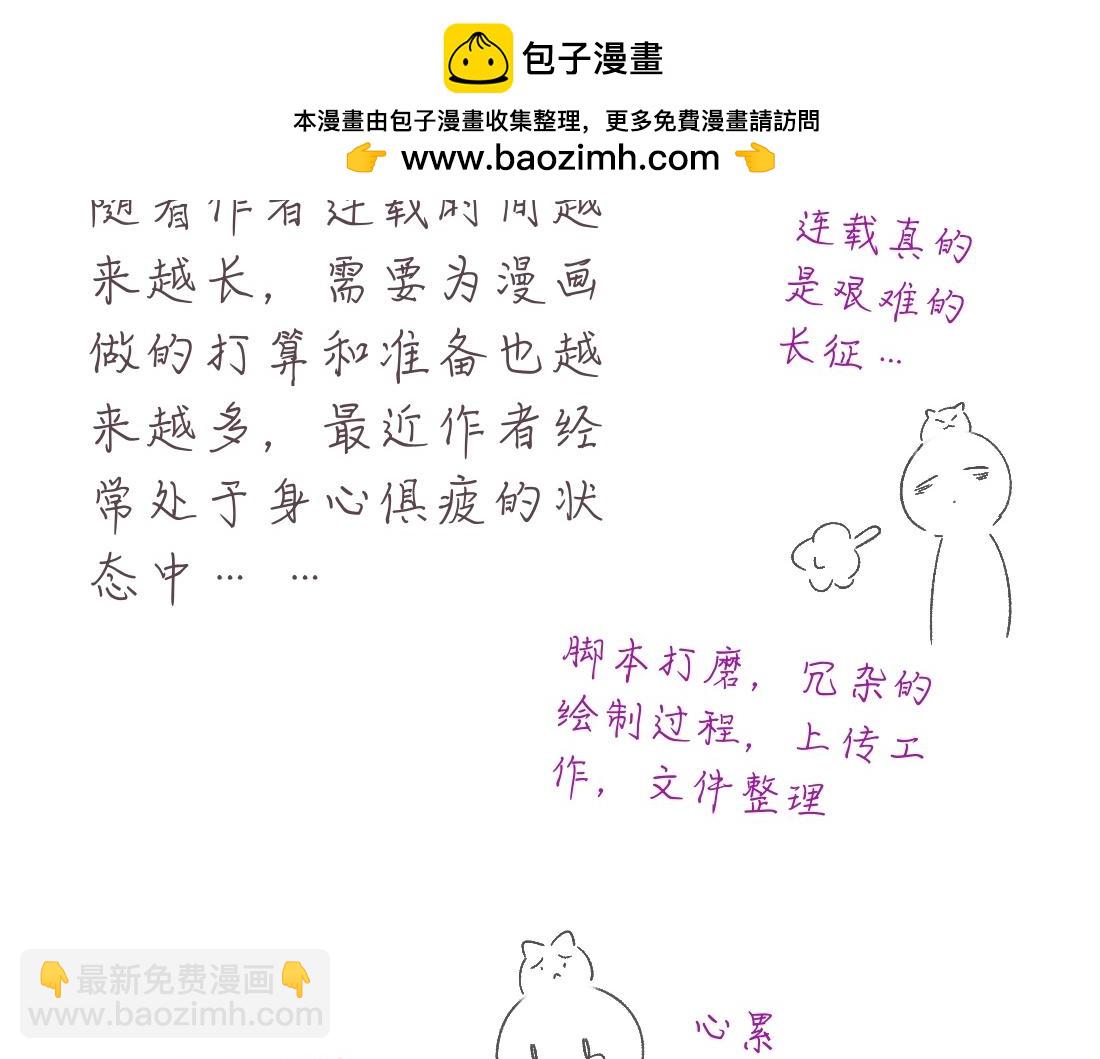 包子漫畫
本漫畫由包子漫畫收集整理，更多免費漫畫請訪問
www.baozimh.com
随着作者连载时间越
来越长，需要为漫画
做的打算和准备也越
来越多，最近作者经
常处于身心俱疲的状
态中… …
连载真的
是艰难的
长征…
脚本打磨，冗杂的
绘制过程，上传工
作，文件整理
心累
最新免费漫画
www.baozimh.com